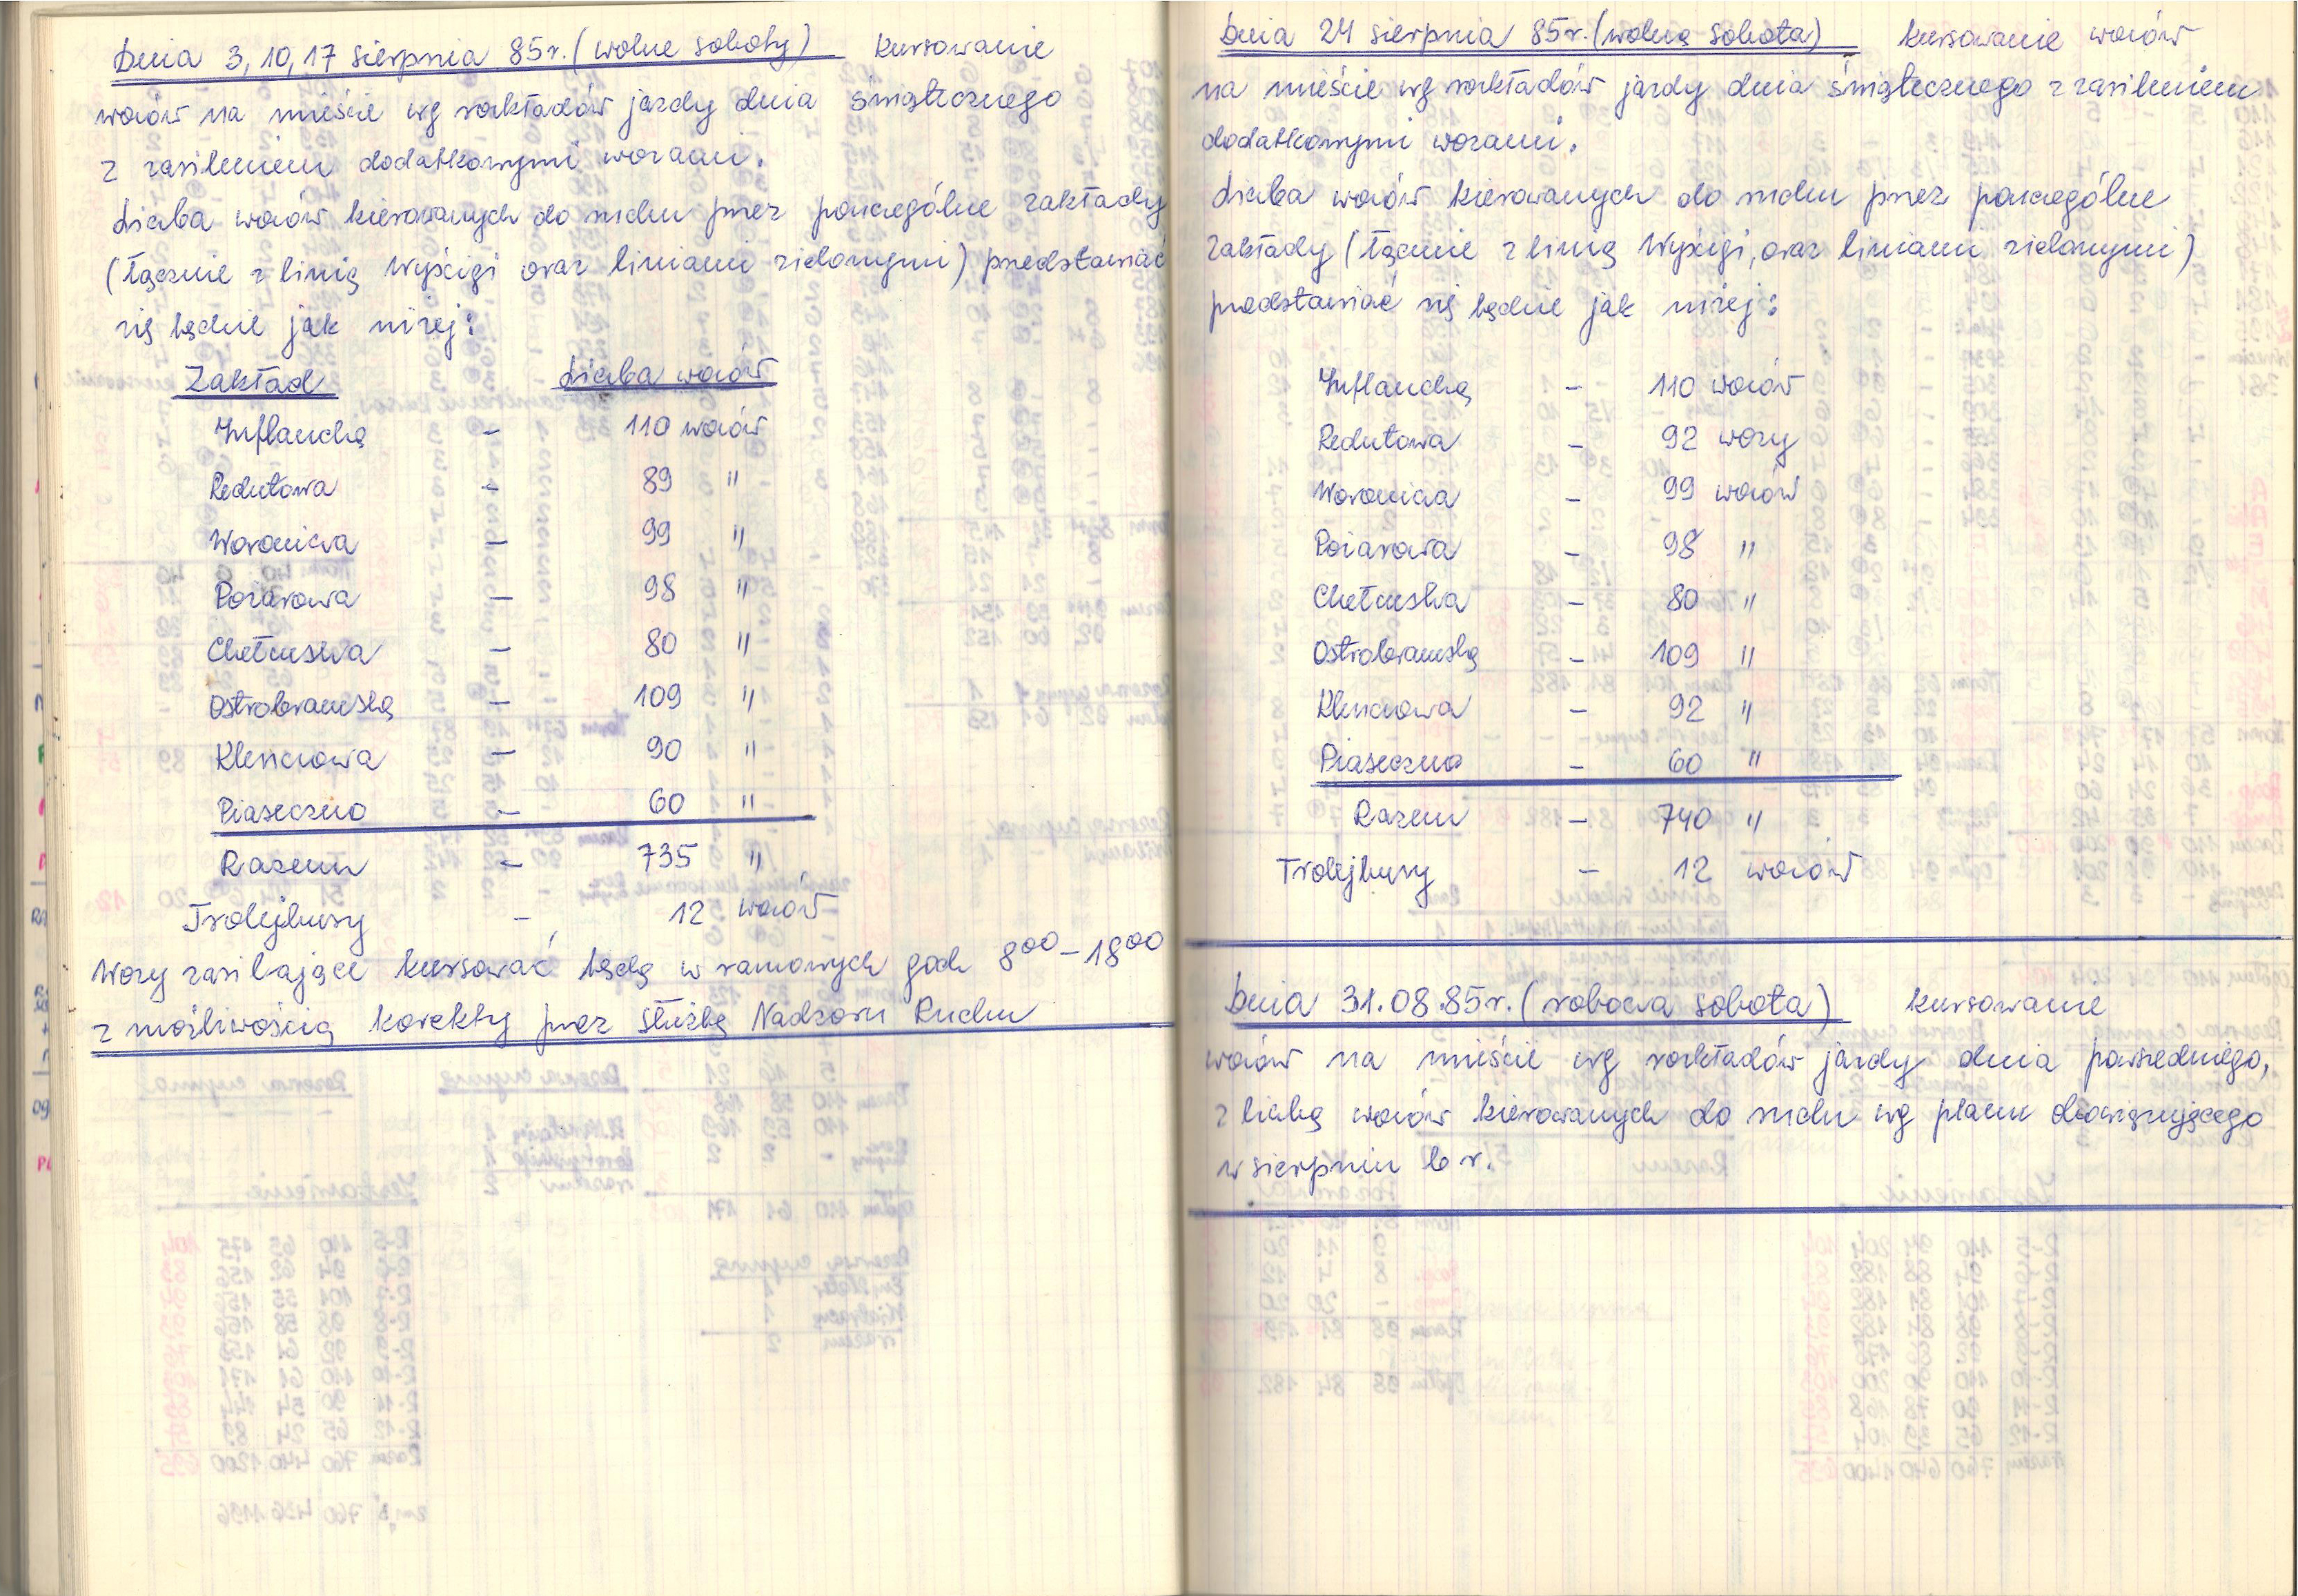 Dnia 3, 10, 17 sierpnia 85r. (wolne soboty) kursowanie
wozów na mieście wg rozkładów jazdy dnia świątecznego
z zasileniem dodatkowymi wozami.
Liczba wozów kierowanych do ruchu przez poszczególne zakłady
(łącznie z linią Wyścigi oraz liniami zielonymi) przedstawiać
się będzie jak niżej:
Zakład Liczba wozów
Inflancka - 110 wozów
Redutowa - 89 "
Woronicza - 99 "
Pożarowa - 98 "
Chełmska - 80 "
Ostrobramska - 109 "
Kleszczowa - 90 "
Piaseczno - 60 "
Razem - 735 "
Trolejbusy - 12 wozów
Wozy zasilające kursować będą w ramowych godz 8⁰⁰-18⁰⁰
z możliwością korekty przez służbę Nadzoru Ruchu
Dnia 24 sierpnia 85r. (wolna sobota) kursowanie wozów
na mieście wg rozkładów jazdy dnia świątecznego z zasileniem
dodatkowymi wozami.
Liczba wozów kierowanych do ruchu przez poszczególne
zakłady (łącznie z linią Wyścigi, oraz liniami zielonymi)
przedstawiać się będzie jak niżej:
Inflancka - 110 wozów
Redutowa - 92 wozy
Woronicza - 99 wozów
Pożarowa - 98 "
Chełmska - 80 "
Ostrobramska - 109 "
Kleszczowa - 92 "
Piaseczno - 60 "
Razem - 740 "
Trolejbusy - 12 wozów
Dnia 31.08.85r. (robocza sobota) kursowanie
wozów na mieście wg rozkładów jazdy dnia powszedniego,
z liczbą wozów kierowanych do ruchu wg planu obowiązującego
w sierpniu b r.